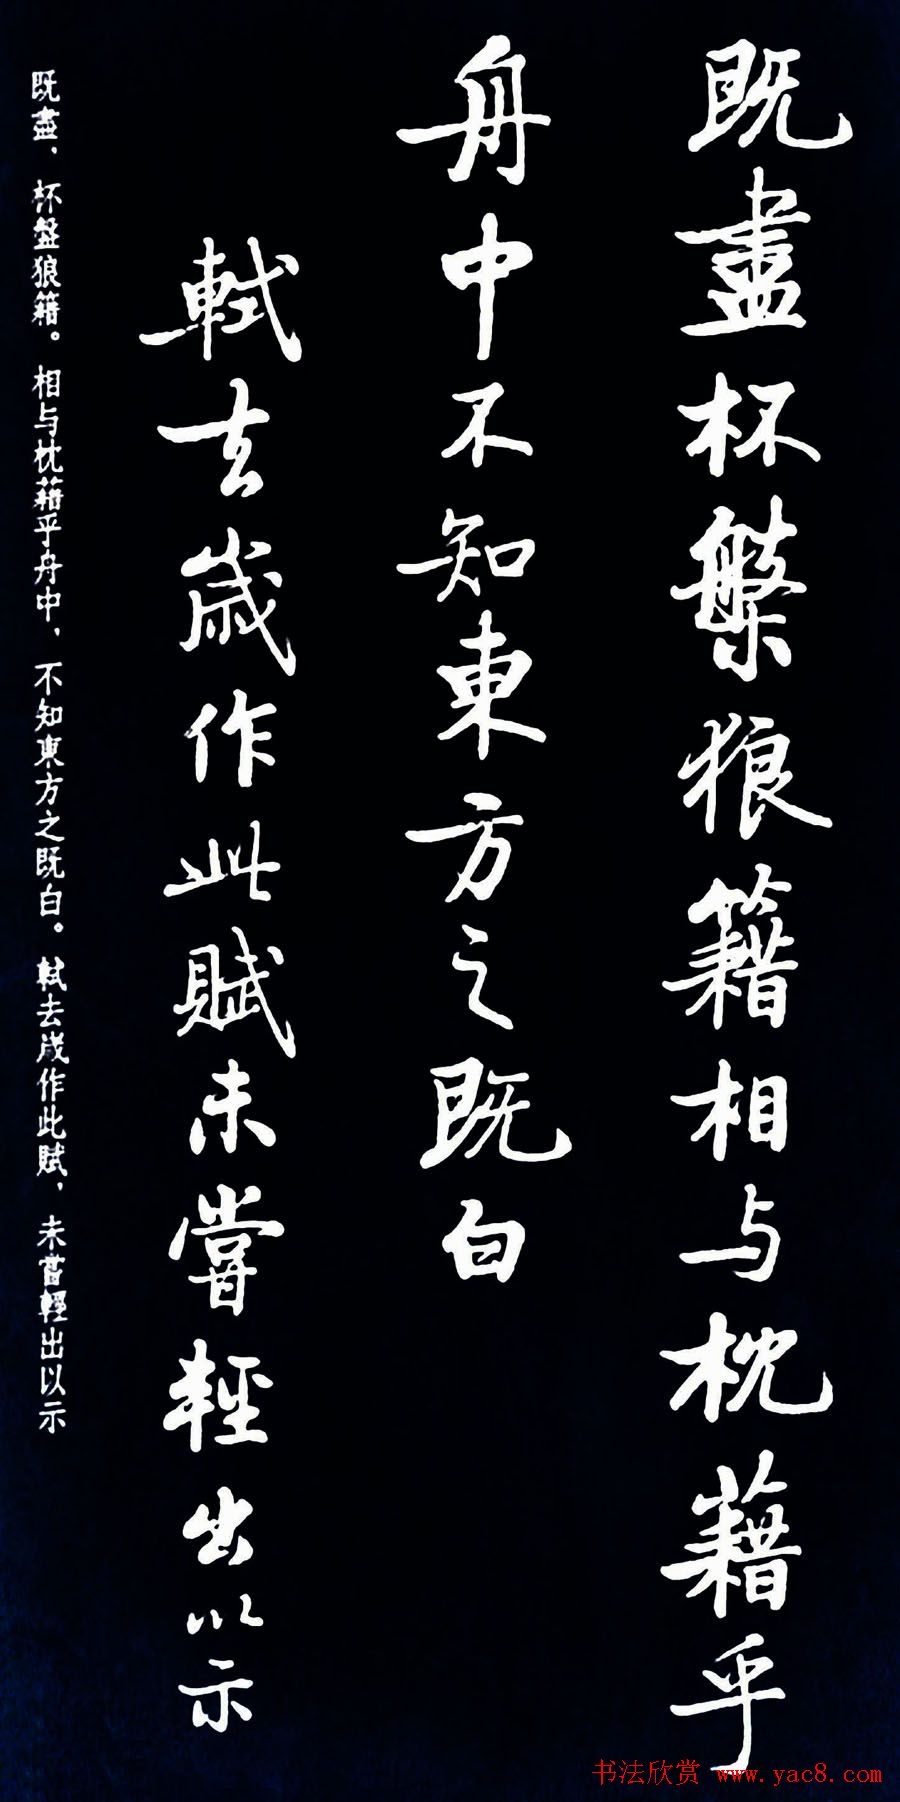 既盡杯槃狼籍相与枕藉乎
舟中不知東方之既白
軾去歲作此賦未嘗輕出以示
既盡、杯盤狼籍。相与枕藉乎舟中，不知東方之既白。軾去歲作此賦，未嘗輕出以示
书法欣赏 www.yac8.com